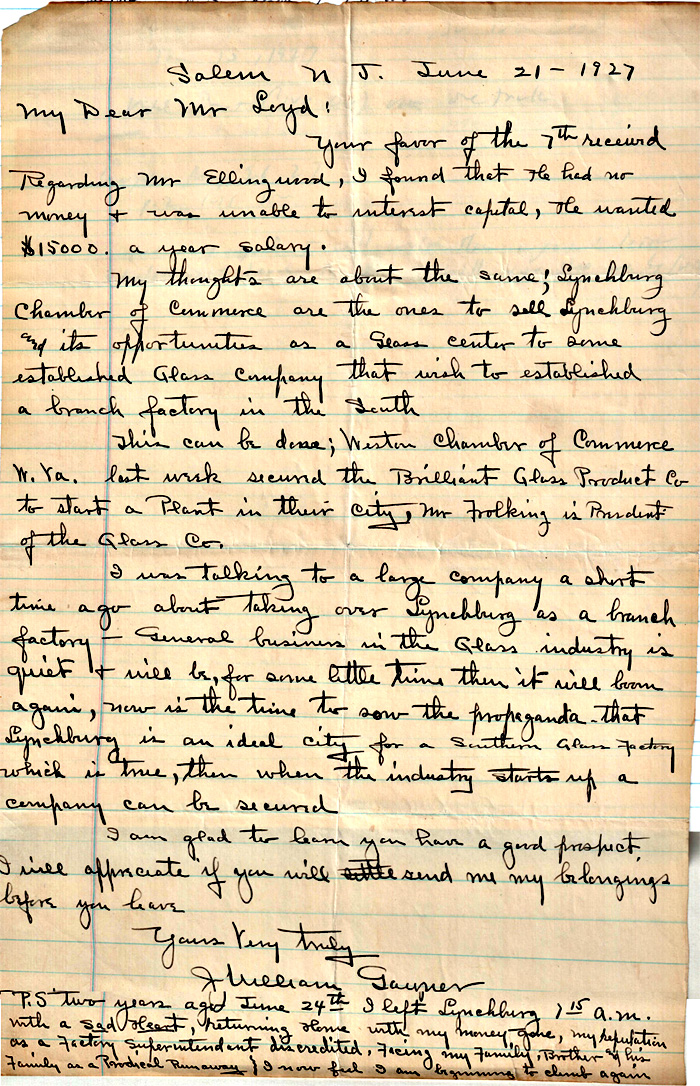 Salem N J. June 21 - 1927
My Dear Mr Loyd!
Your favor of the 7th received
Regarding Mr Ellingwood, I found that He had no
money + was unable to interest capital, He wanted
$15000. a year salary.
My thoughts are about the same; Lynchburg
Chamber of Commerce are the ones to sell Lynchburg
and its opportunities as a Glass center to some
established Glass Company that wish to established
a branch factory in the South
This can be done; Weston Chamber of Commerce
W. Va. last week secured the Brilliant Glass Product Co
to start a Plant in their city, Mr Frolking is President
of the Glass Co.
I was talking to a large company a short
time ago about taking over Lynchburg as a branch
factory - General business in the Glass industry is
quiet + will be, for some little time then it will boom
again, now is the time to sow the propaganda - that
Lynchburg is an ideal city for a Southern Glass Factory
which is true, then when the industry starts up a
company can be secured
I am glad to learn you have a good prospect
I will appreciate if you will send me my belongings
before you leave
Yours Very truly
J William Gayner
P.S two years ago June 24th I left Lynchburg 7 15 a.m.
with a Sad Heart, Returning Home with my money gone, my reputation
as a Factory Superintendent discredited, Facing my Family, Brother & his
Family as a Prodical Runaway } I now feel I am beginning to climb again